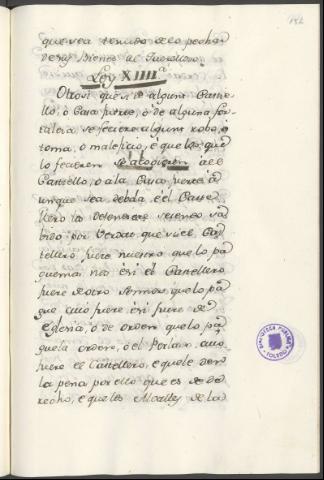 182
que sea tenudo de lo pechar
de sus Bienes al Querelloso.
Ley XIIII.ª
Otrosi que si de algun Caste-
llo, ò Casa fuerte, ò de alguna for-
taleza se ficiere algunt robo, ò
toma, ò maleficio, è que los que
lo ficieren se alogieren à el
Castiello, o à la Casa fuerte à
unque sea debda, è el Caste-
llero los defendiere seiendo sa-
bido por Verdat que si el Cas-
tellero fuere nuestro que lo pa-
guemos nos è si el Castellero
fuere de otro Sennor, que lo pa-
gue cuio fuere è si fuere de
Eglesia, ò de orden que lo pa-
gue la orden, ò el Perlado cuio
fuere el Castellero, è que le den
la pena por ello que es de de-
recho, è que los Alcalles de la
BIBLIOTECA PUBLICA
TOLEDO